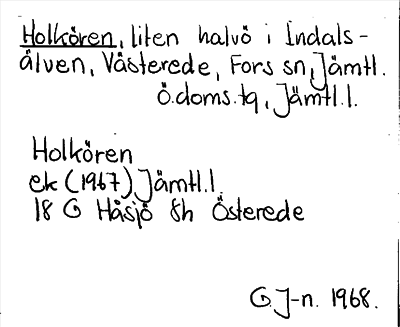 Holkören, liten halvö i Indals-
älven, Västerede, Fors sn, Jämtl.
Ö.doms.tg, Jämtl.l.
Holkören
ek (1967) Jämtl.l.
18 G Håsjö 8h Österede
G.J-n. 1968.